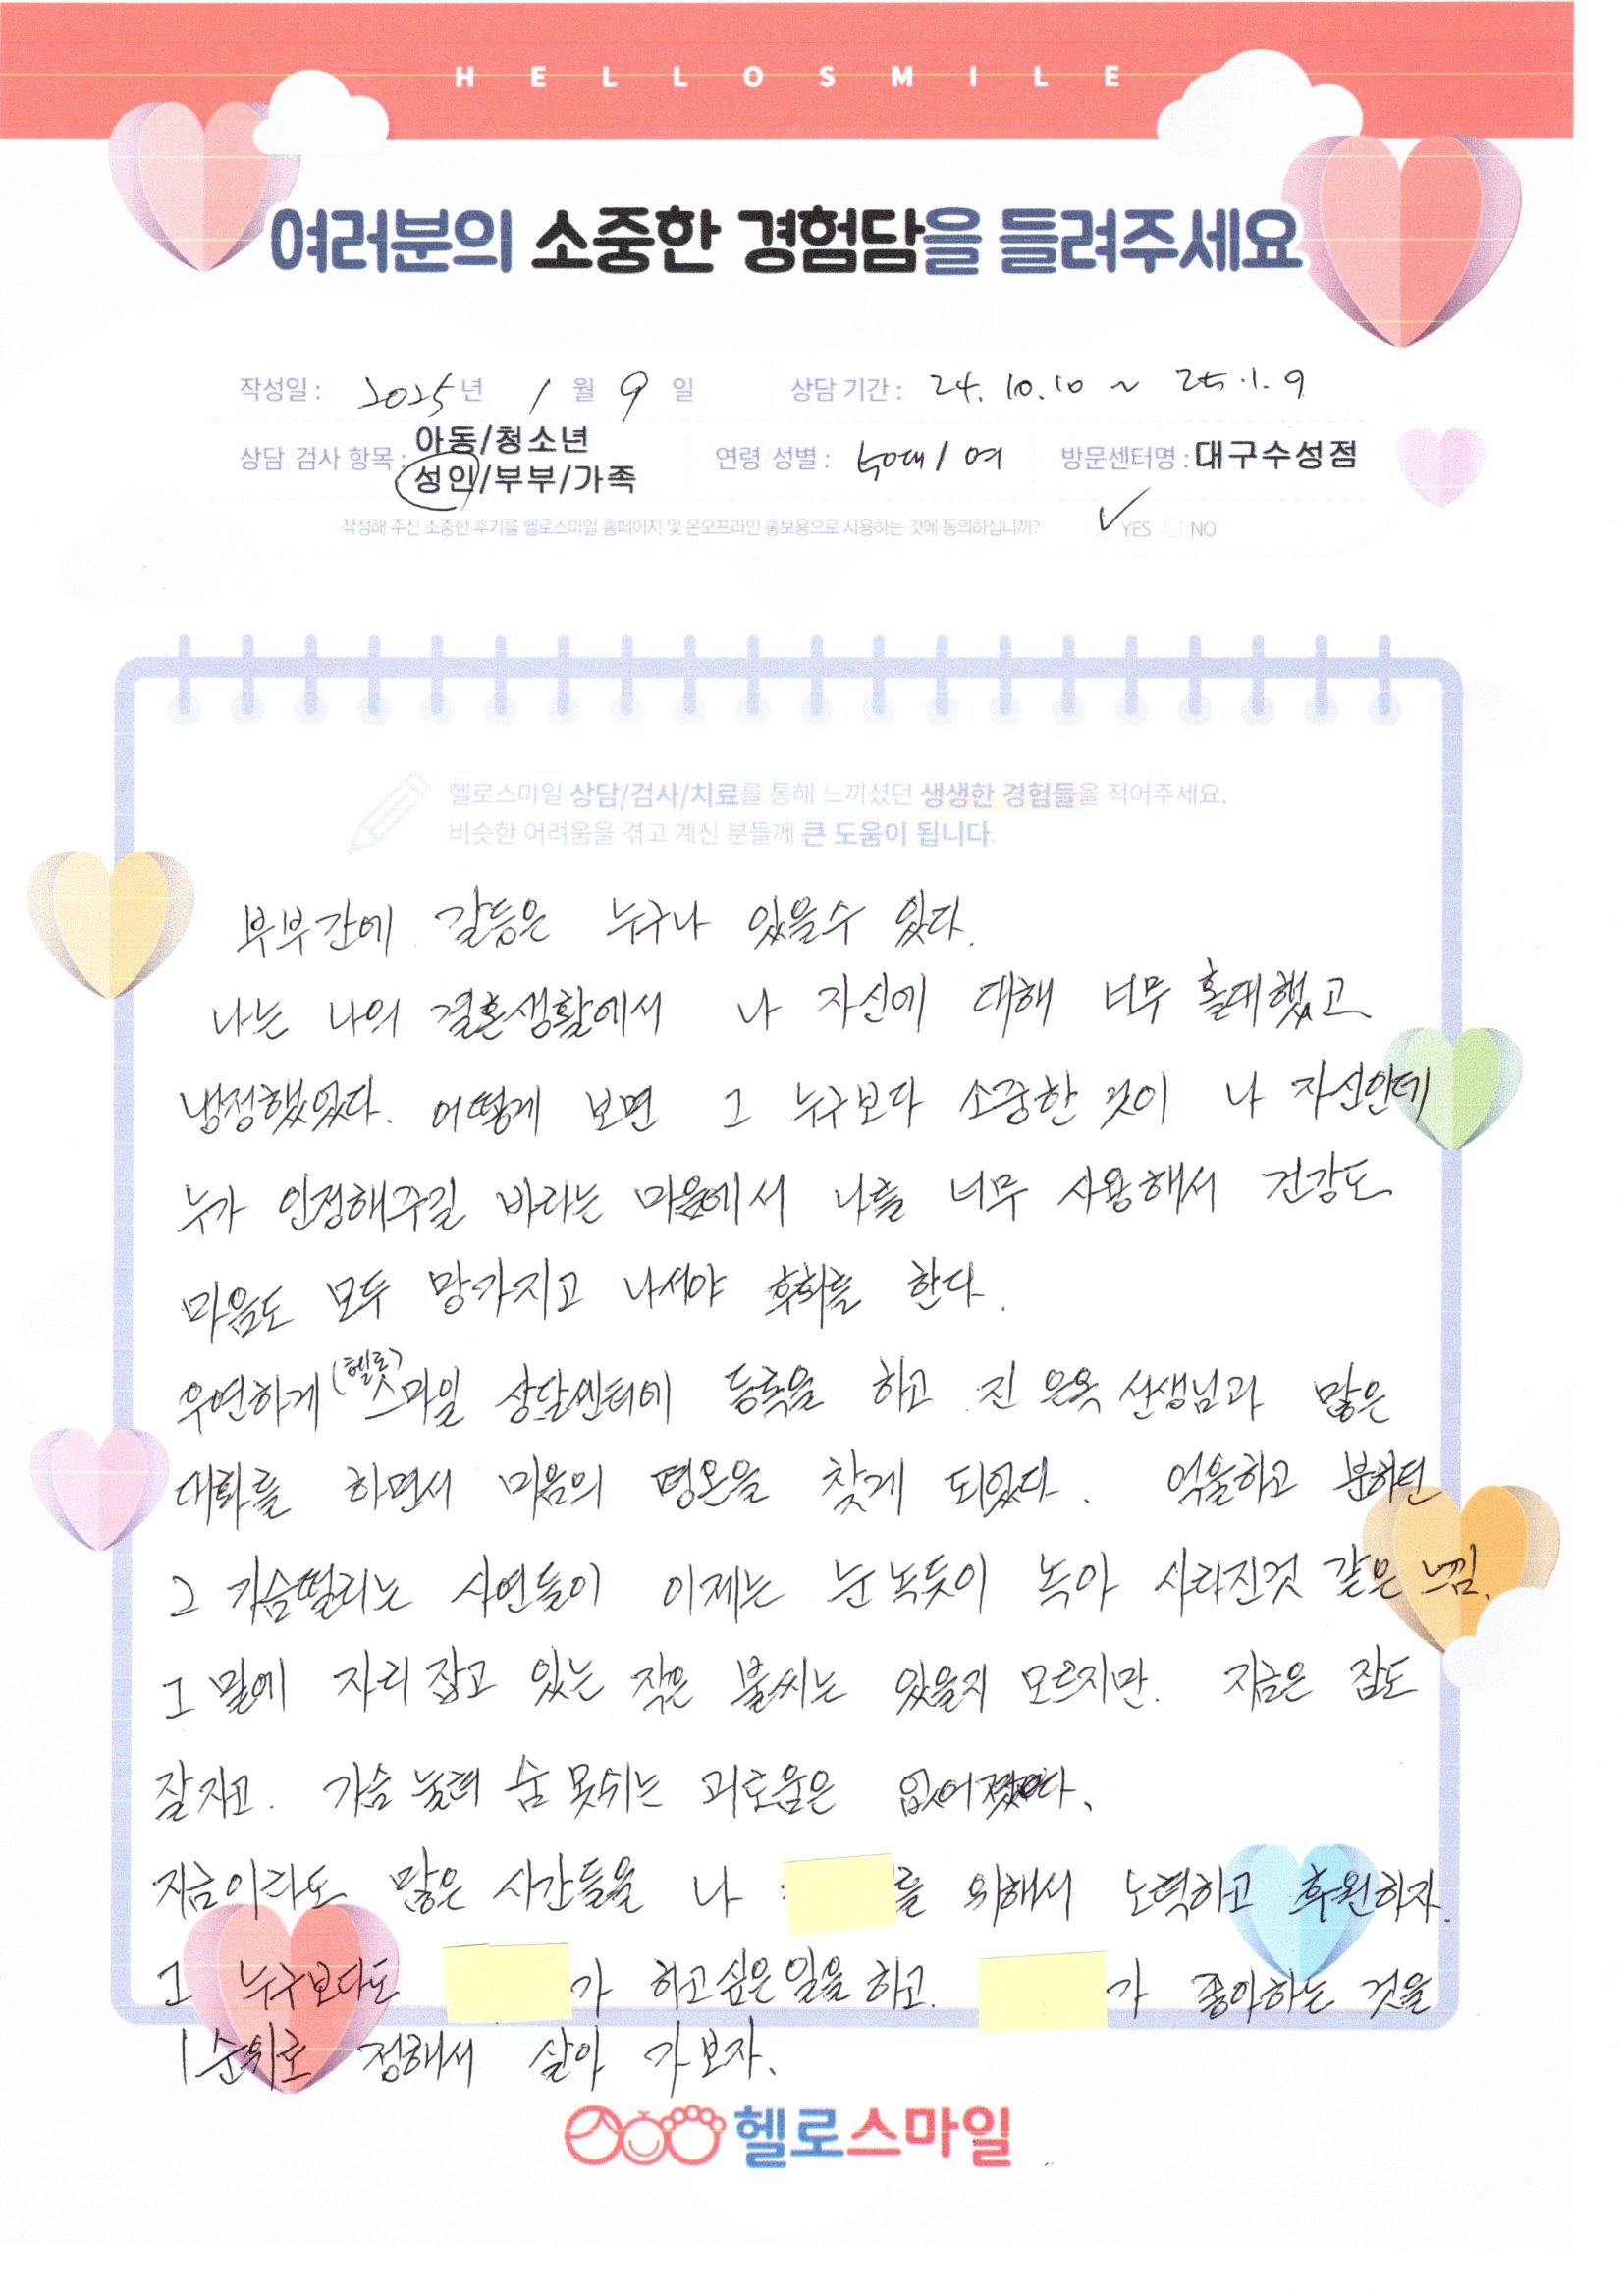 HELLOSMILE
여러분의 소중한 경험담을 들려주세요
작성일 : 2025년 1월 9일 상담 기간 : 24. 10. 10 ~ 25. 1. 9
상담 검사 항목 : 아동/청소년
성인/부부/가족 연령 성별 : 대/여 방문센터명 : 대구수성점
작성해 주신 소중한 후기를 헬로스마일 홈페이지 및 온오프라인 홍보용으로 사용하는 것에 동의하십니까? ✓ YES NO
헬로스마일 상담/검사/치료를 통해 느끼셨던 생생한 경험들을 적어주세요.
비슷한 어려움을 겪고 계신 분들께 큰 도움이 됩니다.
부부간에 갈등은 누구나 있을수 있다.
나는 나의 결혼생활에서 나 자신에 대해 너무 홀대했고
냉정했었다. 어떻게 보면 그 누구보다 소중한 것이 나 자신인데
누가 인정해주길 바라는 마음에서 나를 너무 사용해서 건강도
마음도 모두 망가지고 나서야 후회를 한다.
우연하게 (헬로)스마일 상담쎈터에 등록을 하고 진 은옥 선생님과 많은
대화를 하면서 마음의 평온을 찾게 되었다. 억울하고 분하던
그 가슴떨리는 사연들이 이제는 눈 녹듯이 녹아 사라진것 같은 느낌.
그 밑에 자리 잡고 있는 작은 불씨는 있을지 모르지만. 지금은 잠도
잘자고. 가슴 눌려 숨 못쉬는 괴로움은 없어졌다.
지금이라도 많은 시간들을 나 를 위해서 노력하고 후원하자.
그 누구보다도 가 하고싶은 일을 하고. 가 좋아하는 것을
1순위로 정해서 살아 가보자.
헬로스마일